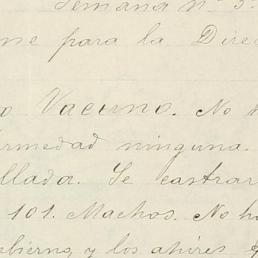 Semana nº 5
me para la Direc
o Vacuno. No h
ermedad ninguna.
llada. Se castrar
101. Machos. No ha
bierno, y los ahires